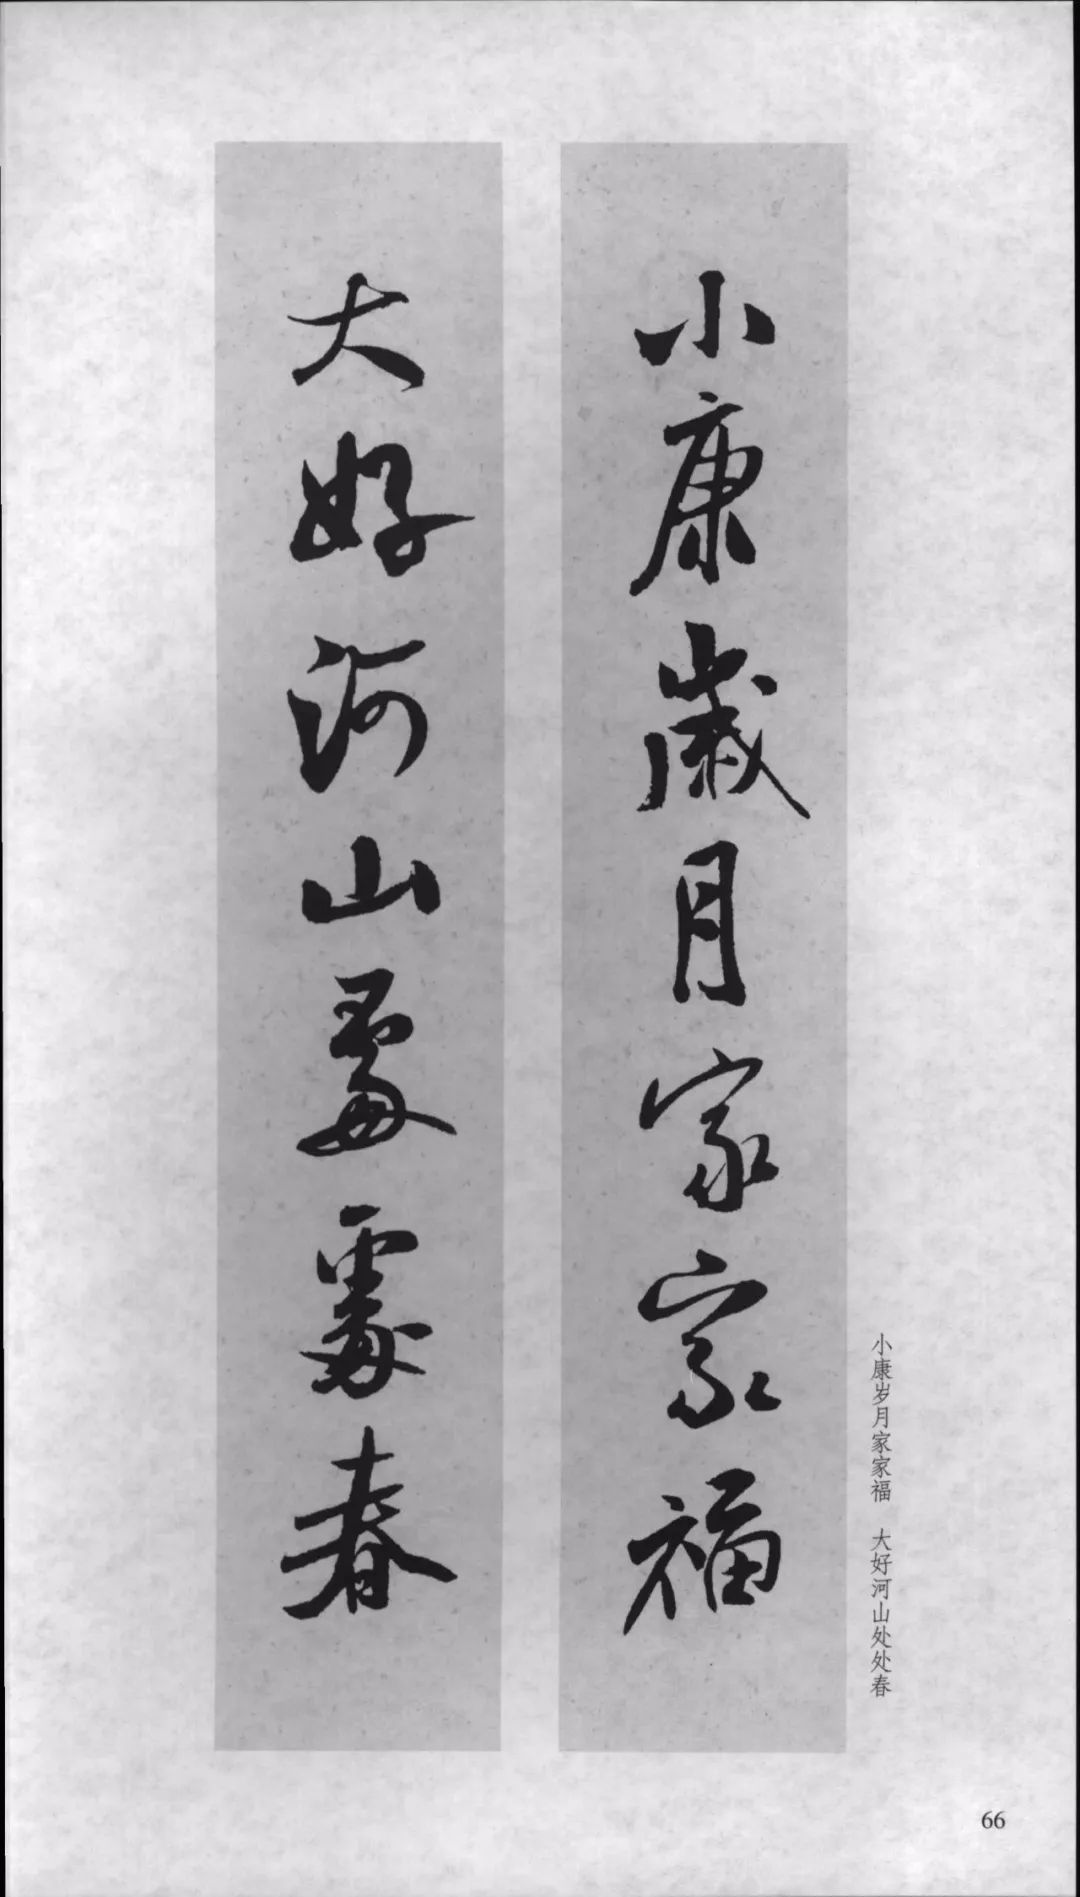 小康歲月家家福
大好河山處處春
小康岁月家家福 大好河山处处春
66